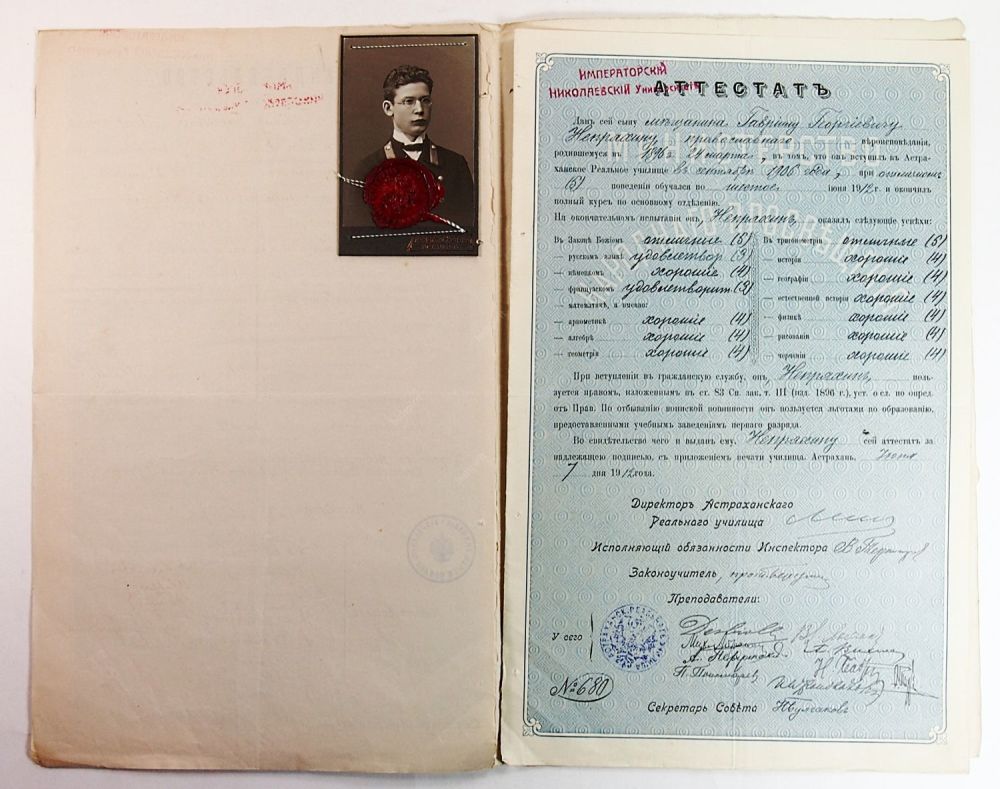 ИМПЕРАТОРСКІЙ
НИКОЛАЕВСКІЙ Университетъ
АТТЕСТАТЪ
Данъ сей сыну мѣщанина Гавріилу Георгіевичу
Непряхину, православнаго вѣроисповѣданія,
родившемуся въ 1896 г. 24 марта, въ томъ, что онъ вступилъ въ Астра-
ханское Реальное училище въ сентябрѣ 1906 года, при отличномъ
(5) поведеніи обучался по шестое іюня 1912 г. и окончилъ
полный курсъ по основному отдѣленію.
На окончательномъ испытаніи онъ, Непряхинъ, оказалъ слѣдующіе успѣхи:
Въ Законѣ Божіемъ отличные (5)
— русскомъ языкѣ удовлетвор (3)
— нѣмецкомъ хорошіе (4)
— французскомъ удовлетворит (3)
— математикѣ, а именно:
— ариѳметикѣ хорошіе (4)
— алгебрѣ хорошіе (4)
— геометріи хорошіе (4)
Въ тригонометріи отличные (5)
— исторіи хорошіе (4)
— географіи хорошіе (4)
— естественной исторіи хорошіе (4)
— физикѣ хорошіе (4)
— рисованіи хорошіе (4)
— черченіи хорошіе (4)
При вступленіи въ гражданскую службу, онъ, Непряхинъ, поль-
зуется правомъ, изложеннымъ въ ст. 83 Св. зак. т. III (изд. 1896 г.), уст. о сл. по опред.
отъ Прав. По отбыванію воинской повинности онъ пользуется льготами по образованію,
предоставленными учебнымъ заведеніямъ перваго разряда.
Во свидѣтельство чего и выданъ ему, Непряхину сей аттестатъ за
надлежащею подписью, съ приложеніемъ печати училища. Астрахань, Іюня
7 дня 1912 года.
Директоръ Астраханскаго
Реальнаго училища
Исполняющій обязанности Инспектора
Законоучитель, протоіерей
Преподаватели:
У сего
П. Пономаревъ
№ 680
Секретарь Совѣта